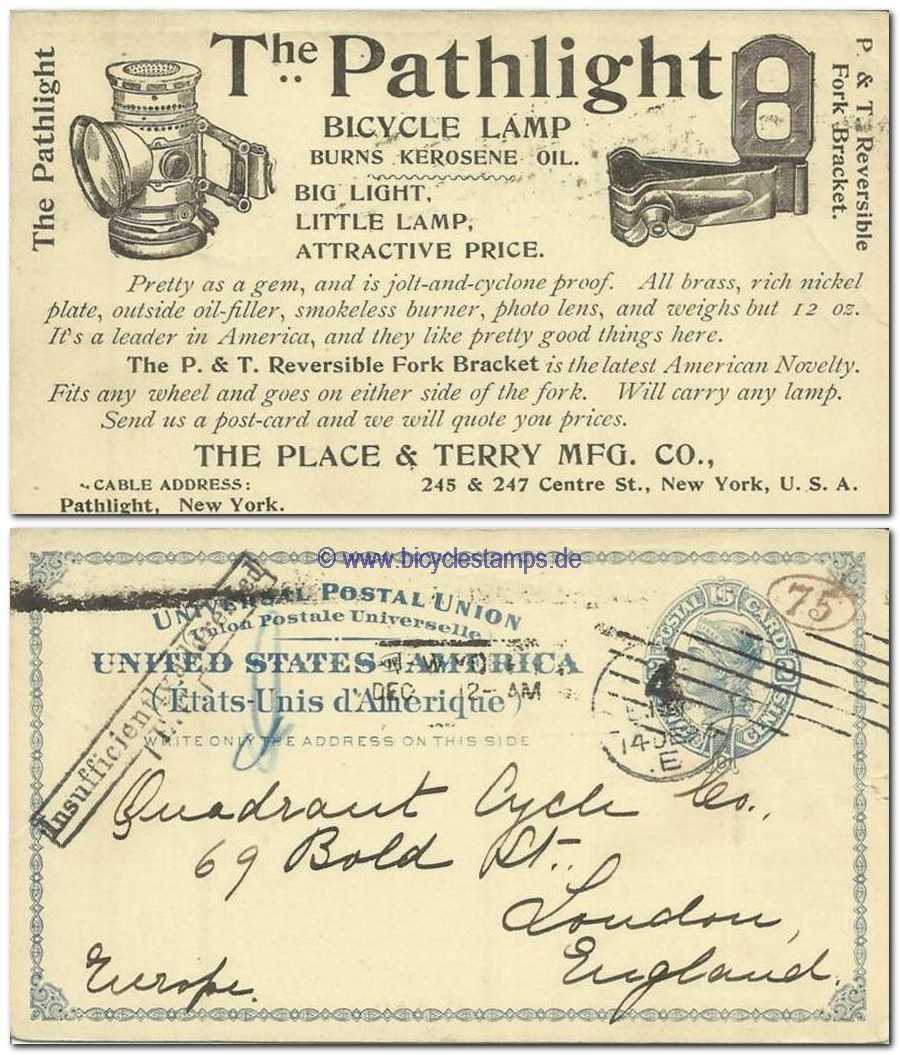 The Pathlight
The Pathlight
BICYCLE LAMP
BURNS KEROSENE OIL.
BIG LIGHT,
LITTLE LAMP,
ATTRACTIVE PRICE.
P. & T. Reversible
Fork Bracket.
Pretty as a gem, and is jolt-and-cyclone proof. All brass, rich nickel
plate, outside oil-filler, smokeless burner, photo lens, and weighs but 12 oz.
It's a leader in America, and they like pretty good things here.
The P. & T. Reversible Fork Bracket is the latest American Novelty.
Fits any wheel and goes on either side of the fork. Will carry any lamp.
Send us a post-card and we will quote you prices.
THE PLACE & TERRY MFG. CO.,
CABLE ADDRESS:
245 & 247 Centre St., New York, U. S. A.
Pathlight, New York.
© www.bicyclestamps.de
UNIVERSAL POSTAL UNION
Union Postale Universelle
UNITED STATES AMERICA
États-Unis d'Amérique
WRITE ONLY THE ADDRESS ON THIS SIDE
Insufficiently Addressed
POSTAL CARD
2 CENTS
75
DEC 12- AM
14 DE
E
Quadrant Cycle Co.,
69 Bold St.
London,
England.
Europe.